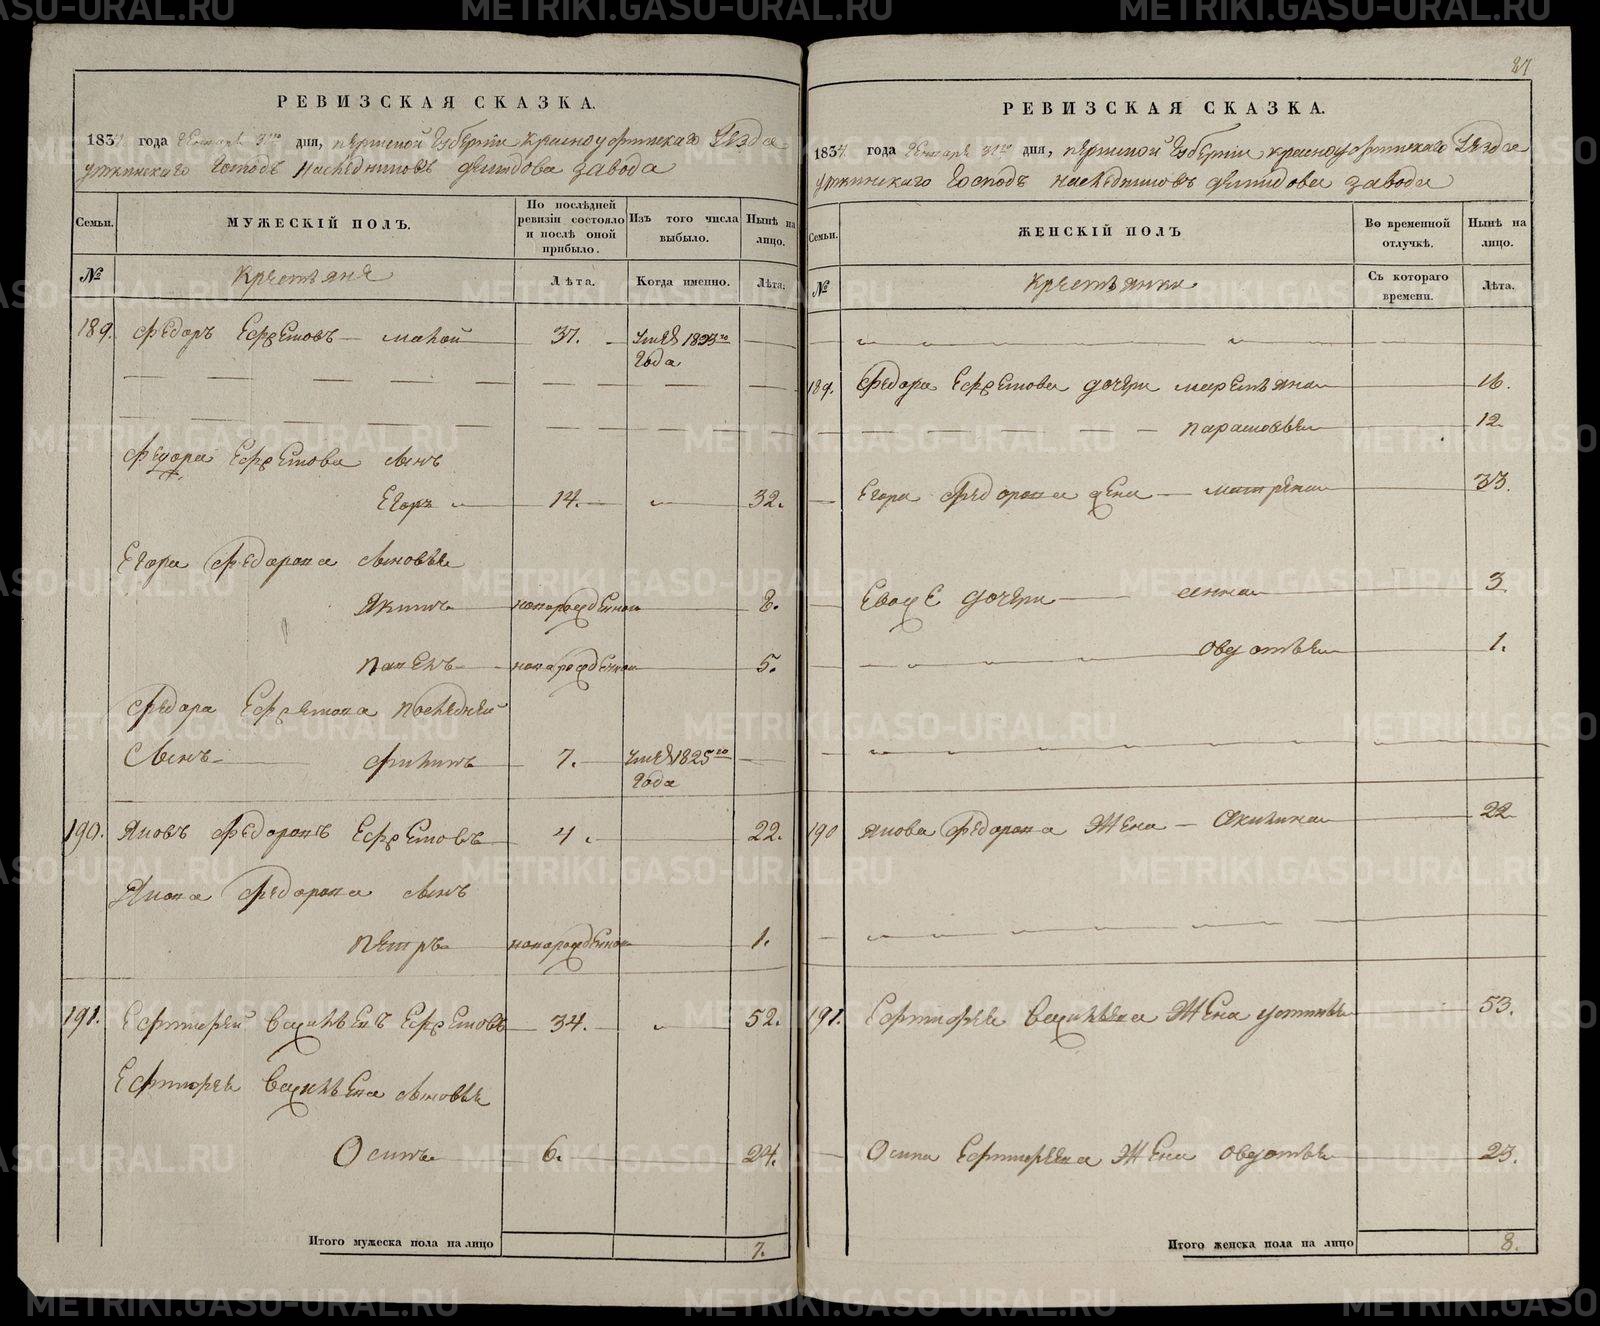 METRIKI.GASO-URAL.RU
27
РЕВИЗСКАЯ СКАЗКА.
1834 года Генваря 31го дня, пермской Губернiи красноуфимскаго Уезда
уткинскаго Господъ наследниковъ демидова завода
Семьи.
МУЖЕСКIЙ ПОЛЪ.
По послѣдней ревизiи состояло и послѣ оной прибыло.
Изъ того числа выбыло.
Нынѣ на лицо.
№
крестьяне
Лѣта.
Когда именно.
Лѣта.
189. Федоръ Ефремовъ малой 37. умеръ 1833го года
Федора Ефремова сынъ
Егоръ 14. 32.
Егора Федорова сыновья
Якимъ новорожденной 8.
Павелъ новорожденной 5.
Федора Ефремова последней
сынъ Филипъ 7. умеръ 1825го года
190. Яковъ Федоровъ Ефремовъ 4. 22.
Якова Федорова сынъ
петръ новорожденной 1.
191. Ефтифей Васильевъ Ефремовъ 34. 52.
Васильева сыновья
Осипъ 6. 24.
Итого мужеска пола на лицо 7.
РЕВИЗСКАЯ СКАЗКА.
1834 года Генваря 31го дня, пермской Губернiи красноуфимскаго Уезда
уткинскаго Господъ наследниковъ демидова завода
Семьи.
ЖЕНСКIЙ ПОЛЪ
Во временной отлучкѣ.
Нынѣ на лицо.
№
крестьянки
Съ котораго времени.
Лѣта.
189. Федора Ефремова дочери маремьяна 16.
парасковья 12.
Егора Федорова жена матрена 33.
Евоже дочери анна 3
овдотья 1.
190 якова Федорова Жена Акилина 22
191. Васильева Жена устинья 53.
Осипа Жена овдотья 23.
Итого женска пола на лицо 8.